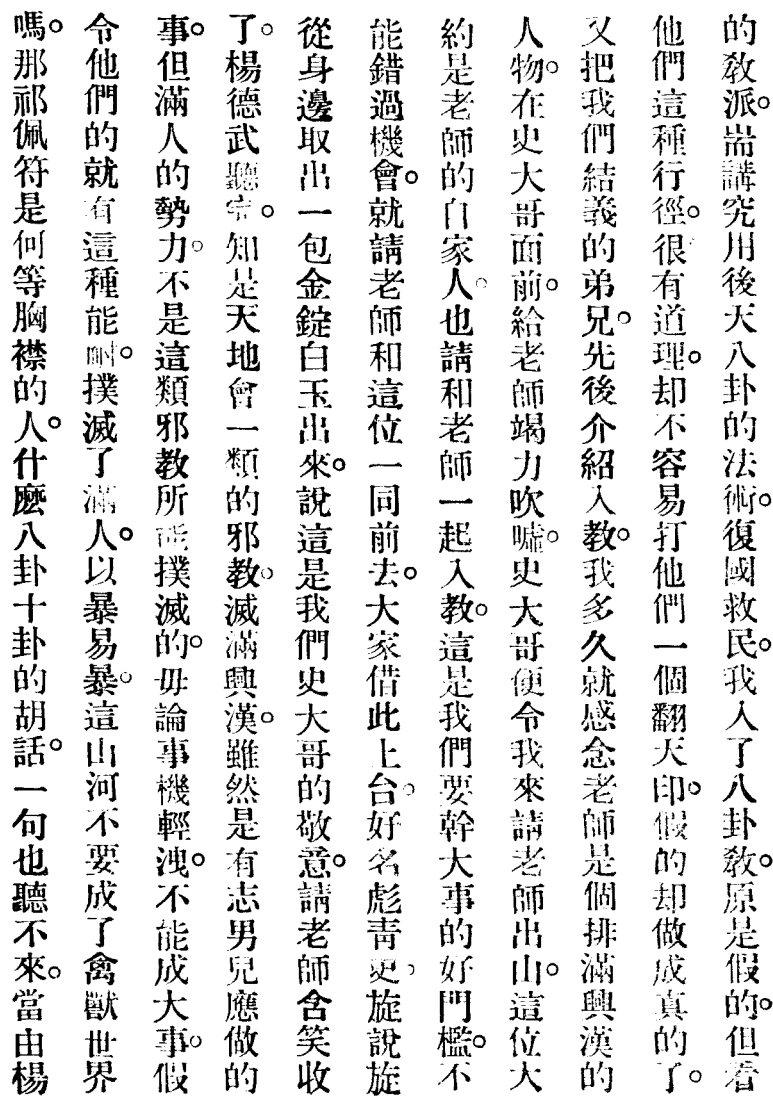 的敎派。耑講究用後天八卦的法術。復國救民。我入了八卦敎。原是假的。但看
他們這種行徑。很有道理。却不容易打他們一個翻天印。假的却做成真的了。
又把我們結義的弟兄。先後介紹入教。我多久就感念老師是個排滿興漢的
人物。在史大哥面前。給老師竭力吹噓。史大哥便令我來請老師出山。這位大
約是老師的自家人。也請和老師一起入教。這是我們要幹大事的好門檻。不
能錯過機會。就請老師和這位一同前去。大家借此上台。好名彪靑史。旋說旋
從身邊取出一包金錠白玉出來。說這是我們史大哥的敬意。請老師含笑收
了。楊德武聽完。知是天地會一類的邪教。滅滿興漢。雖然是有志男兒應做的
事。但滿人的勢力。不是這類邪教所能撲滅的。毋論事機輕洩。不能成大事。假
令他們的就有這種能耐。撲滅了滿人。以暴易暴。這山河不要成了禽獸世界
嗎。那祁佩符是何等胸襟的人。什麽八卦十卦的胡話。一句也聽不來。當由楊